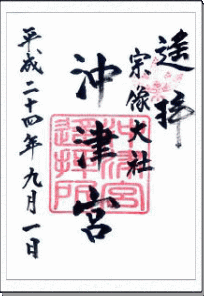 遙拝
宗像大社
沖津宮
平成二十四年九月一日
沖津宮
遥拝所